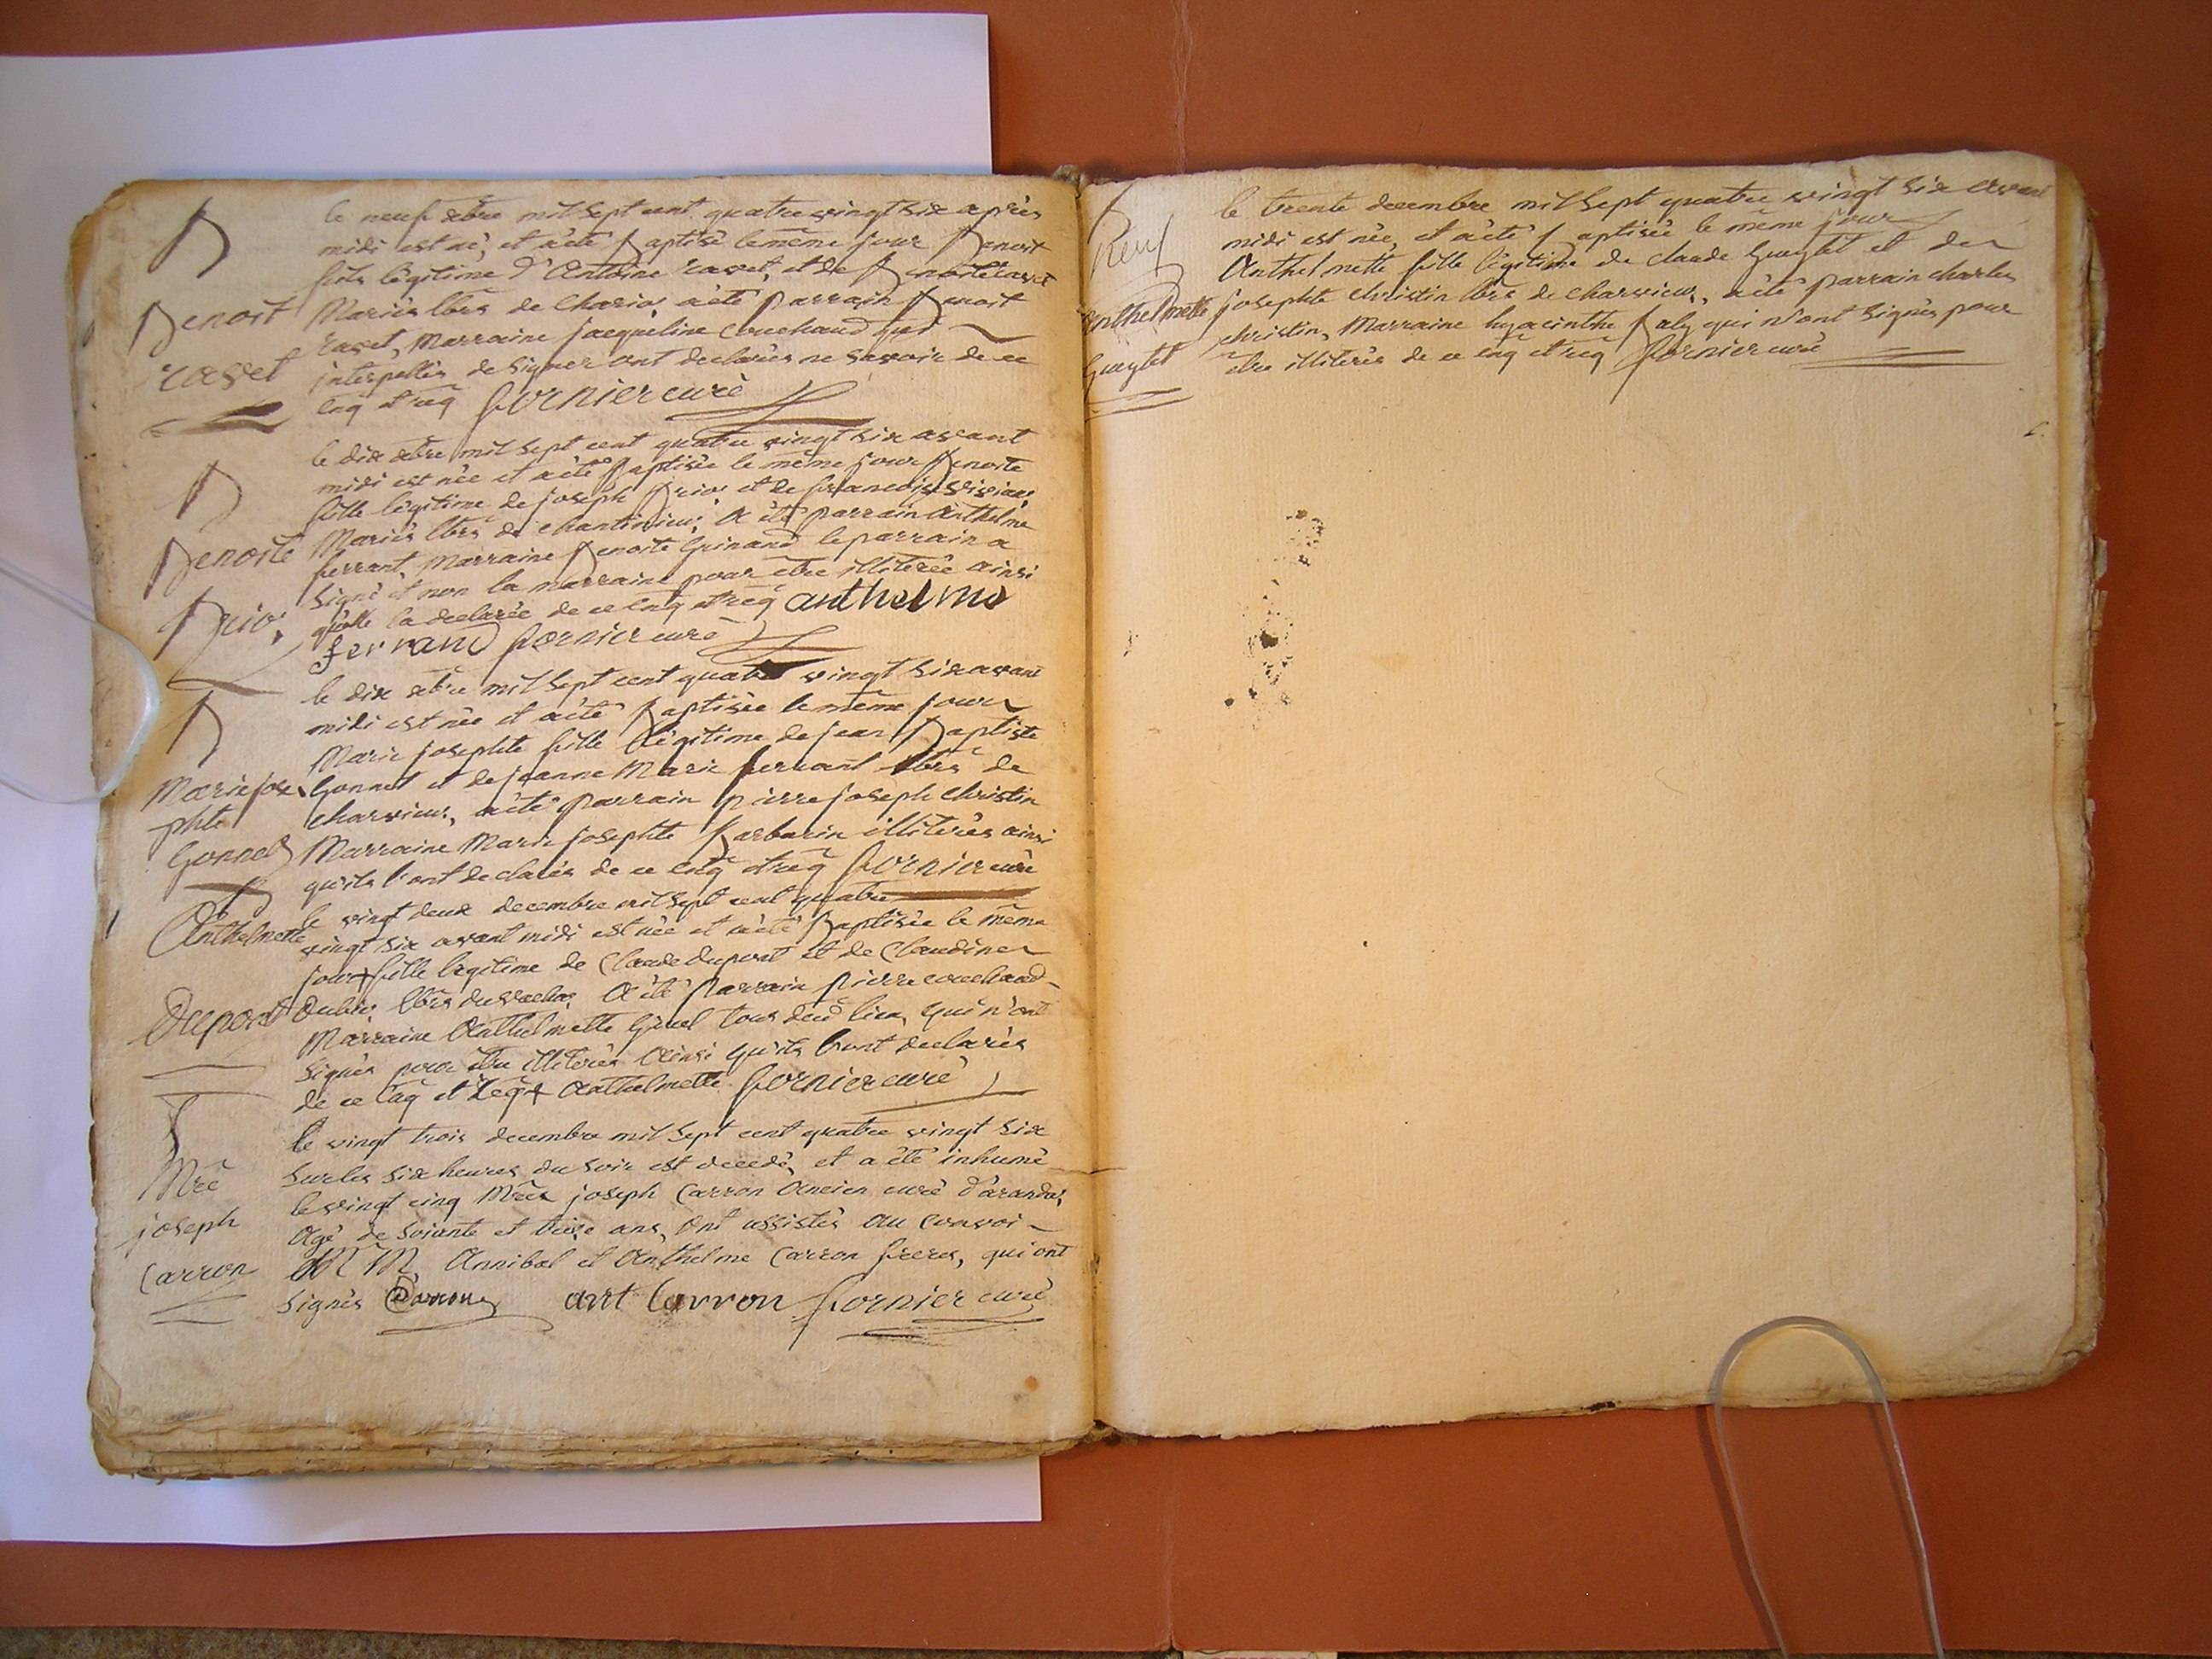 B
Benoit
ravet
le neuf xbre mil sept cent quatre vingt six après
midi est né, et a èté Baptisé le même jour Benoit
fils légitime d'Antoine ravet, et de Benoite
Mariés lbrs de a èté parrain Benoit
ravet, Marraine jacqueline couchaud qui
interpellés de signer ont declarés ne savoir de ce
enq et req fornier curé
B
Benoite
Brio,
le dix xbre mil sept cent quatre vingt six avant
midi est née et a èté Baptisée le même jour Benoite
fille légitime de joseph Brio, et de
Mariés lbrs de a èté parrain Anthelme
ferrant, Marraine Benoite Grinand le parrain a
signé et non la marraine pour être illiterée ainsi
qu'elle la declarée de ce enq et req anthelme
ferrand fornier curé
B
Marie jose
phte
Gonnet
le dix xbre mil sept cent quatre vingt six avant
midi est née et a èté Baptisée le même jour
Marie josephte fille légitime de jean Baptiste
Gonnet et de jeanne Marie ferrant lbrs de
charvieux, a èté parrain pierre joseph christin
Marraine Marie josephte Barbarin illiterés ainsi
qu'ils l'ont declarés de ce enq et req fornier curé
B
Anthelmette
Duport
le vingt deux decembre mil sept cent quatre
vingt six avant midi est née et a èté Baptisée le même
jour + fille légitime de Claude duport et de Claudine
lbrs A èté parrain pierre couchaud
Marraine Anthelmette tous lieu, qui n'ont
signés pour être illiterés Ainsi qu'ils l'ont declarés
de ce enq et req + Anthelmette fornier curé
Mre
joseph
Carron
le vingt trois decembre mil sept cent quatre vingt six
sur les six heures du soir est decedé, et a été inhumé
le vingt cinq Mre joseph Carron Ancien curé d'arandas,
Agé de soixante et treize ans, Ont assistés Au convoi
MM Annibal et Anthelme Carron freres, qui ont
signés Carron ant Carron fornier curé
Anthelmette
le trente decembre mil sept quatre vingt six avant
midi est née, et a èté Baptisée le même jour
Anthelmette fille légitime de claude et de
josephte christin lbrs de charvieux, a èté parrain charles
christin, Marraine hyacinthe qui n'ont signés pour
être illiterés de ce enq et req fornier curé